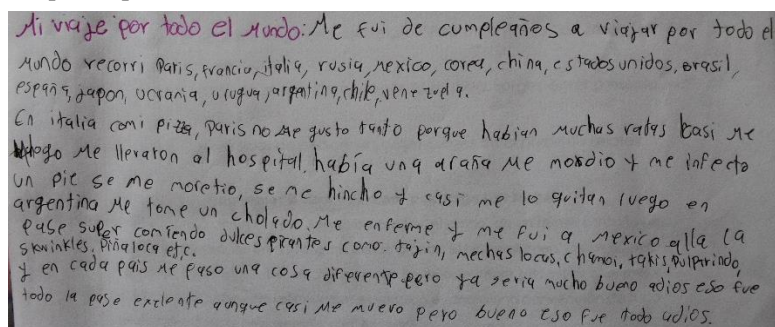 Mi viaje por todo el Mundo: Me fui de cumpleaños a viajar por todo el
Mundo recorri Paris, francia, italia, rusia, mexico, corea, china, estados unidos, brasil,
españa, japon, ucrania, urugua, argentina, chile, venezuela.
En italia comi pizza, paris no me gusto tanto porque habian muchas ratas casi me
ahogo me lleraron al hospital, había una araña me mordio y me infecto
un pie se me moretio, se me hincho y casi me lo quitan luego en
argentina me tome un cholado. Me enferme y me fui a mexico alla la
pase super comiendo dulces picantes como: tajin, mechas locas, chamoi, takis, pulparindo,
skwinkles, Piña loca etc.
y en cada pais me paso una cosa diferente pero ya seria mucho bueno adios eso fue
todo la pase exelente aunque casi me muero pero bueno eso fue todo adios.